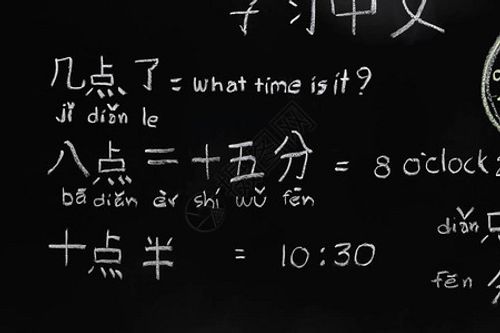 学习中文
几点了 = what time is it?
jǐ diǎn le
八点二十五分 = 8 o'clock 2
bā diǎn èr shí wǔ fēn
diǎn 点
十点半 = 10:30
fēn 分